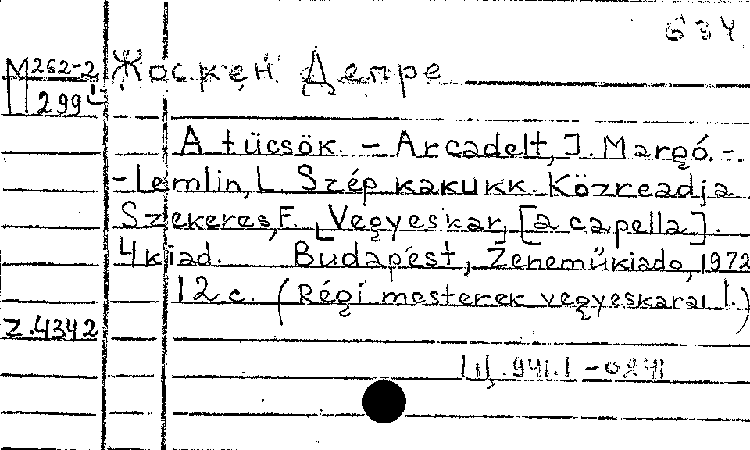 634
М262-2 Жоскен Депре
299
A tücsök. - Arcadelt, J. Margó. -
- Lemlin, L. Szép kakukk. Közreadja
Szekeres, F. Vegyeskar, [a capella].
4 kiad. Budapest, Zeneműkiado, 1972
12 c. (Régi mesterek vegyeskarai 1.)
Z.4342
Щ.941.1-0241